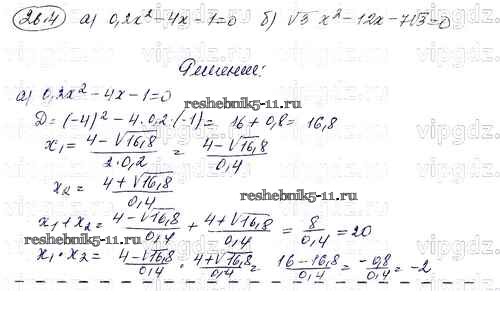 26.4 а) 0,2x² - 4x - 1 = 0 б) √3 x² - 12x - 7√3 = 0
Решение:
а) 0,2x² - 4x - 1 = 0
reshebnik5-11.ru
D = (-4)² - 4·0,2·(-1) = 16 + 0,8 = 16,8
x₁ = (4 - √16,8)/(2·0,2) = (4 - √16,8)/0,4
x₂ = (4 + √16,8)/0,4
reshebnik5-11.ru
x₁ + x₂ = (4 - √16,8)/0,4 + (4 + √16,8)/0,4 = 8/0,4 = 20
reshebnik5-11.ru
x₁ · x₂ = (4 - √16,8)/0,4 · (4 + √16,8)/0,4 = (16 - 16,8)/0,4 = -0,8/0,4 = -2